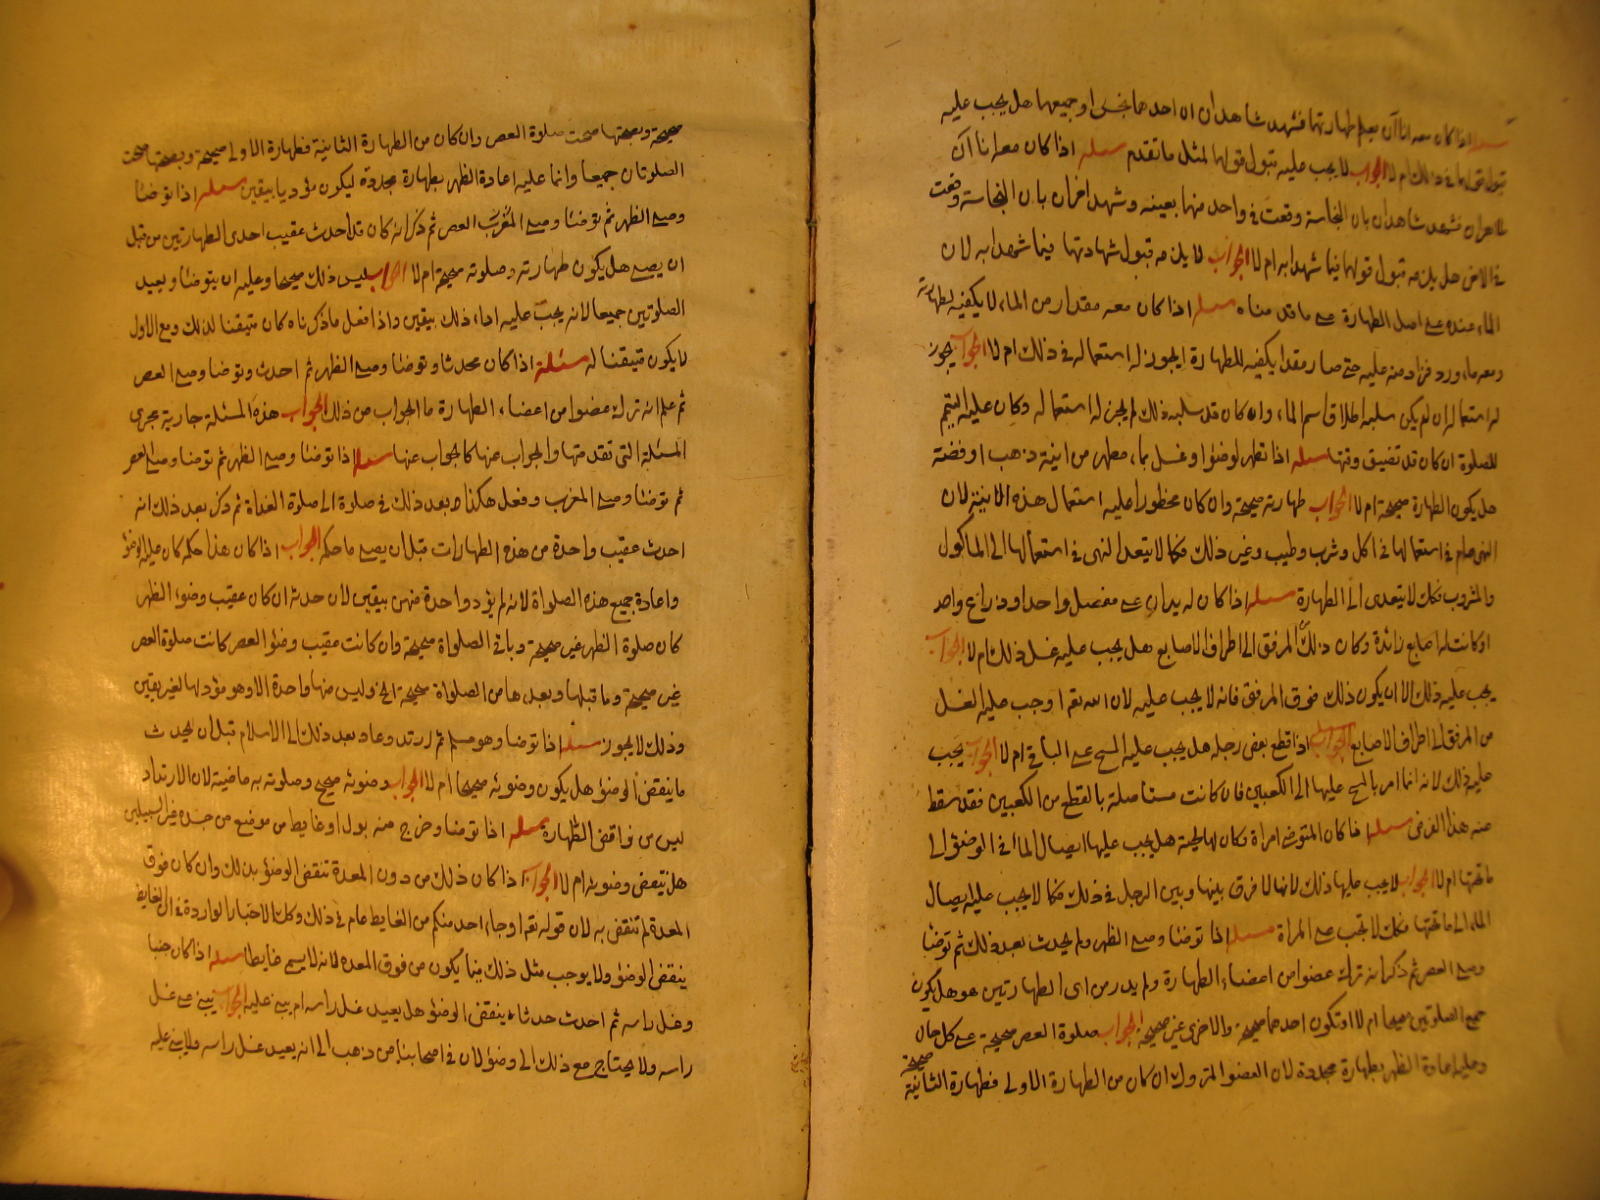 مسئلة اذا كان معه اناآن يعلم طهارتهما فشهد شاهدان ان احدهما نجس او جميعها هل يجب عليه
قبول قولهما في ذلك ام لا الجواب لا يجب عليه قبول قولهما لمثل ما تقدم مسئله اذا كان معه اناآن
طاهران فشهد شاهدان بان النجاسة وقعت في واحد منهما بعينه وشهد اخران بان النجاسة وقعت
في الاخر هل يلزمه قبول قولهما فيما شهدا به ام لا الجواب لا يلزمه قبول شهادتهما فيما شهدا به لان
الماء عنده على اصل الطهارة على ما قدمناه مسئله اذا كان معه مقدار من الماء لا يكفيه لطهارته
ومعه ماء ورد فزاد منه عليه حتى صار مقدار يكفيه للطهارة ايجوز له استعماله في ذلك ام لا الجواب يجوز
له استعماله ان لم يكن سلبه اطلاق اسم الماء وان كان قد سلبه ذلك لم يجز له استعماله وكان عليه التيمم
للصلوة ان كان قد تضيق وقتها مسئله اذا تطهر لوضوء او غسل بماء مطهر من انية ذهب او فضة
هل يكون الطهارة صحيحة ام لا الجواب طهارته صحيحة وان كان محظورا عليه استعمال هذه الانية لان
النهى عام في استعمالها في اكل وشرب وطيب وغير ذلك فكما لا يتعدا النهى في استعمالها الى الماكول
والمشروب فكك لا يتعدى الى الطهارة مسئله اذا كان له يدان على مفصل واحد او ذراع واحد
او كانت له اصابع زائدة وكان ذلك المرفق الى اطراف الاصابع هل يجب عليه غسل ذلك ام لا الجواب
يجب عليه ذلك الا ان يكون ذلك فوق المرفق فانه لا يجب عليه لان الله تعه اوجب عليه الغسل
من المرفق الى اطراف الاصابع الجواب اذا قطع بعض رجله هل يجب عليه المسح على الباقى ام لا الجواب يجب
عليه ذلك لانه انما امر بالمسح عليها الى الكعبين فان كانت مستاصلة بالقطع من الكعبين فقد سقط
عنه هذا الفرض مسئله اذا كان المتوضى امراة وكان لها لحية هل يجب عليها ايصال الماء في الوضوء الى
ما تحتها ام لا الجواب لا يجب عليها ذلك لانها لا فرق بينها وبين الرجل في ذلك فكما لا يجب عليه ايصال
الماء الى ما تحتها فكك لا تجب على المراة مسئله اذا توضأ وصلى الظهر ولم يحدث بعد ذلك ثم توضأ
وصلى العصر ثم ذكر انه ترك عضوا من اعضاء الطهارة ولم يدر من اى الطهارتين هو هل يكون
جميع الصلوتين صحيحا ام لا او تكون احدهما صحيحة والاخرى غير صحيحة الجواب صلوة العصر صحيحة على كل حال
وعليه اعادة الظهر بطهارة مجددة لان العضو المتروك ان كان من الطهارة الاولى فطهارة الثانية صحيحة
صحيحة وبصحتها صحت صلوة العصر وان كان من الطهارة الثانية فطهارة الاولى صحيحة وبصحتها صحت
الصلوتان جميعا وانما عليه اعادة الظهر بطهارة مجددة ليكون مؤديا بيقين مسئله اذا توضأ
وصلى الظهر ثم توضأ وصلى المغرب العصر ثم ذكر انه كان قد احدث عقيب احدى الطهارتين من قبل
ان يصلى هل يكون طهارته وصلوته صحيحة ام لا الجواب ليس ذلك صحيحا وعليه ان يتوضأ ويعيد
الصلوتين جميعا لانه يجب عليه اداء ذلك بيقين واذا فعل ما ذكرناه كان متيقنا لذلك ومع الاول
لا يكون متيقنا له مسئلة اذا كان محدثا وتوضأ وصلى الظهر ثم احدث وتوضا وصلى العصر
ثم علم انه ترك عضوا من اعضاء الطهارة ما الجواب من ذلك الجواب هذه المسئلة جارية مجرى
المسئلة التى تقدمتها والجواب عنها كالجواب عنها مسئله اذا توضأ وصلى الظهر ثم توضأ وصلى العصر
ثم توضأ وصلى المغرب وفعل هكذا بعد ذلك في صلوة الى صلوة الغداة ثم ذكر بعد ذلك انه
احدث عقيب واحدة من هذه الطهارات قبل ان يصلى ما حكمه الجواب اذا كان هذا حكمه كان عليه الوضوء
واعادة جميع هذه الصلواة لانه لم يؤد واحدة منهن بيقين لان حدثه ان كان عقيب وضوء الظهر
كان صلوة الظهر غير صحيحة وباقى الصلواة صحيحة وان كانت عقيب وضؤ العصر كانت صلوة العصر
غير صحيحة وما قبلها وبعدها من الصلواة صحيحة الخ وليس منها واحدة الا وهو مؤد لها لغير يقين
وذلك لا يجوز مسئله اذا توضا وهو مسلم ثم ارتد وعاد بعد ذلك الى الاسلام قبل ان يحدث
ما ينقض الوضؤ هل يكون وضوئه صحيحا ام لا الجواب وضوئه صحيح وصلوته به ماضية لان الارتداد
ليس من نواقض الطهارة مسئله اذا توضا وخرج منه بول او غايط من موضع من جسده غير السبيلين
هل ينتقض وضوئه ام لا الجواب اذا كان ذلك من دون المعدة تنقض الوضوء بذلك وان كان فوق
المعدة لم تنقض به لان قوله تعه او جاء احد منكم من الغايط عام في ذلك وكك الاخبار الواردة في ان الغايط
ينقض الوضؤ ولا يوجب مثل ذلك فيما يكون من فوق المعده لانه لا يسمى غايطا مسئله اذا كان جنبا
وغسل راسه ثم احدث حدثا ينقض الوضوء هل يعيد غسل راسه ام يبنى عليه الجواب يبنى على غسل
راسه ولا يحتاج مع ذلك الى وضوء لان في اصحابنا من ذهب الى انه يعيد غسل راسه ولا يبنى عليه